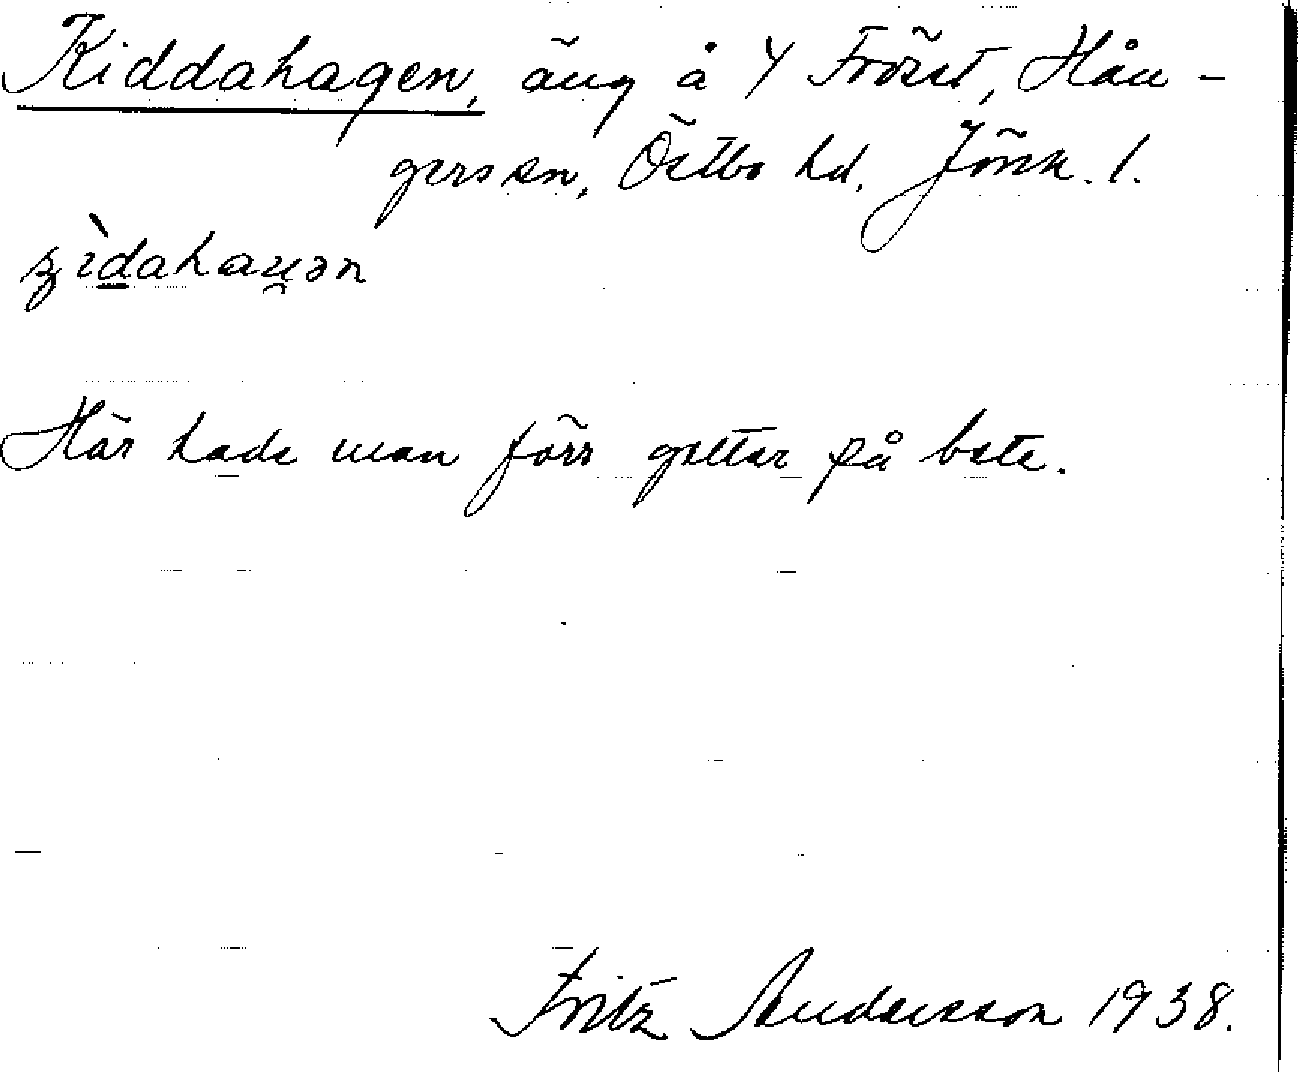 Kiddahagen, äng å Y Fröset, Hån-
gers sn, Östbo hd, Jönk. l.
Här hade man förr getter på bete.
Fritz Andersson 1938.